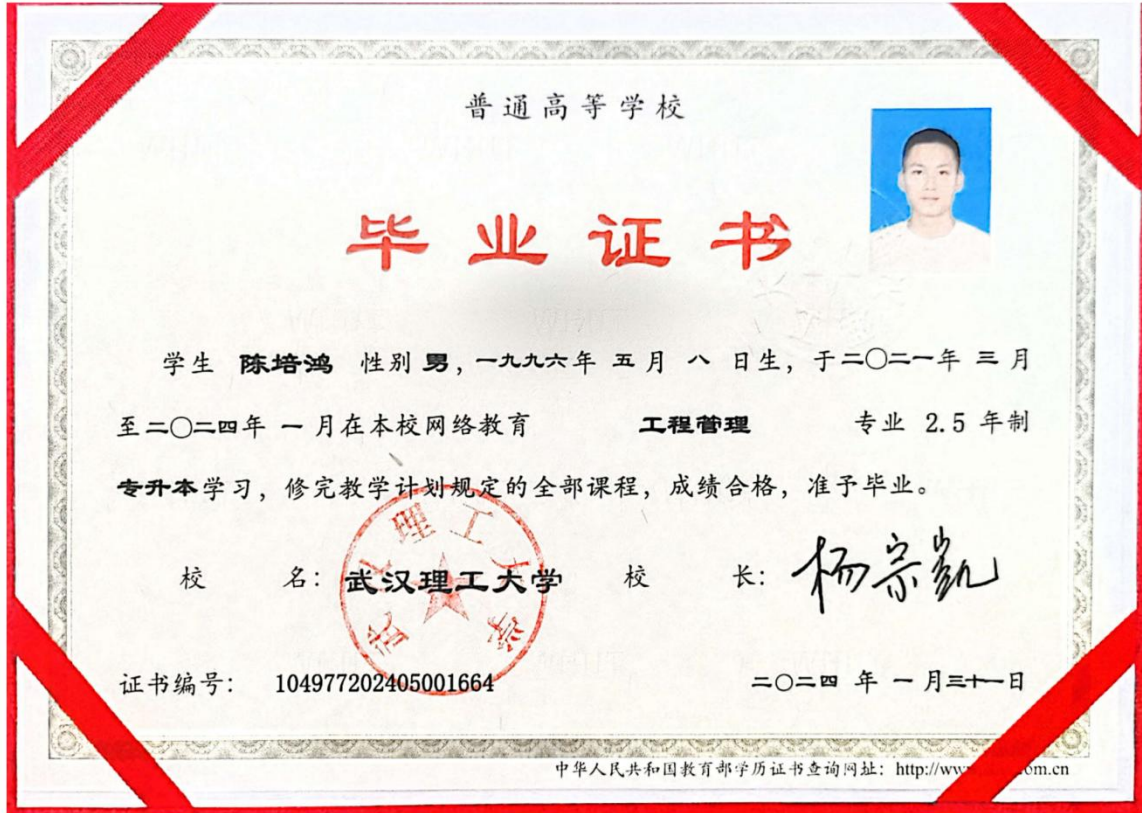 普通高等学校
毕业证书
学生 陈培鸿 性别 男，一九九六年 五 月 八 日生，于二〇二一年 三 月
至二〇二四年 一 月在本校网络教育 工程管理 专业 2.5 年制
专升本学习，修完教学计划规定的全部课程，成绩合格，准予毕业。
校 名：武汉理工大学 校 长：杨宗凯
武汉理工大学
证书编号： 104977202405001664 二〇二四 年 一 月三十一日
中华人民共和国教育部学历证书查询网址：http://www. om.cn